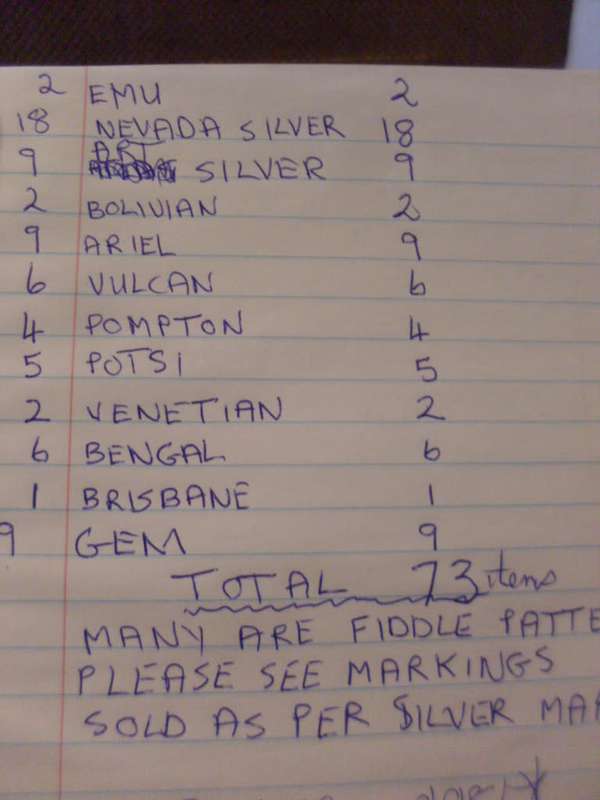 2 EMU 2
18 NEVADA SILVER 18
9 ART SILVER 9
2 BOLIVIAN 2
9 ARIEL 9
6 VULCAN 6
4 POMPTON 4
5 POTSI 5
2 VENETIAN 2
6 BENGAL 6
1 BRISBANE 1
9 GEM 9
TOTAL 73 items
MANY ARE FIDDLE PATTE
PLEASE SEE MARKINGS
SOLD AS PER SILVER MAR